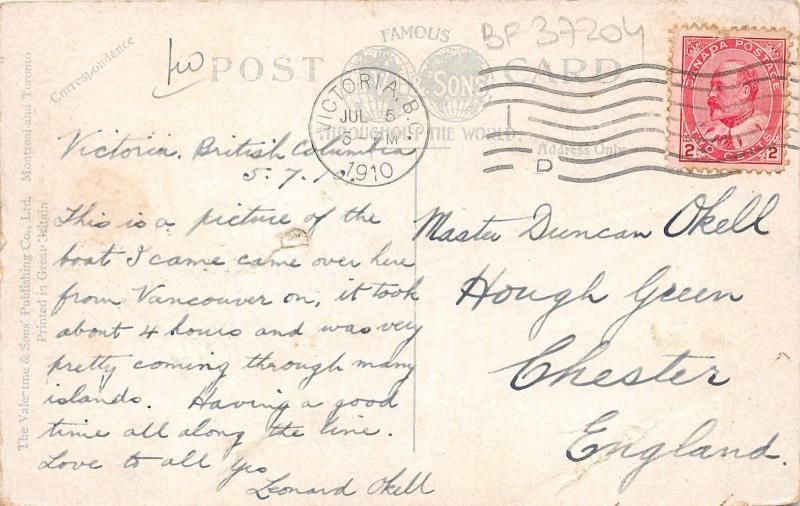 BF 37204
FAMOUS
POST CARD
& SONS
THROUGHOUT THE WORLD
Correspondence
Address Only
VICTORIA, B.C.
JUL 5
M
1910
D
CANADA POSTAGE
TWO CENTS
2 2
The Valentine & Sons' Publishing Co., Ltd. Montreal and Toronto
Printed in Great Britain
Victoria. British Columbia
5. 7. 10.
This is a picture of the
boat I came came over here
from Vancouver on, it took
about 4 hours and was very
pretty coming through many
islands. Having a good
time all along the line.
Love to all yrs
Leonard Okell
Master Duncan Okell
Hough Green
Chester
England.